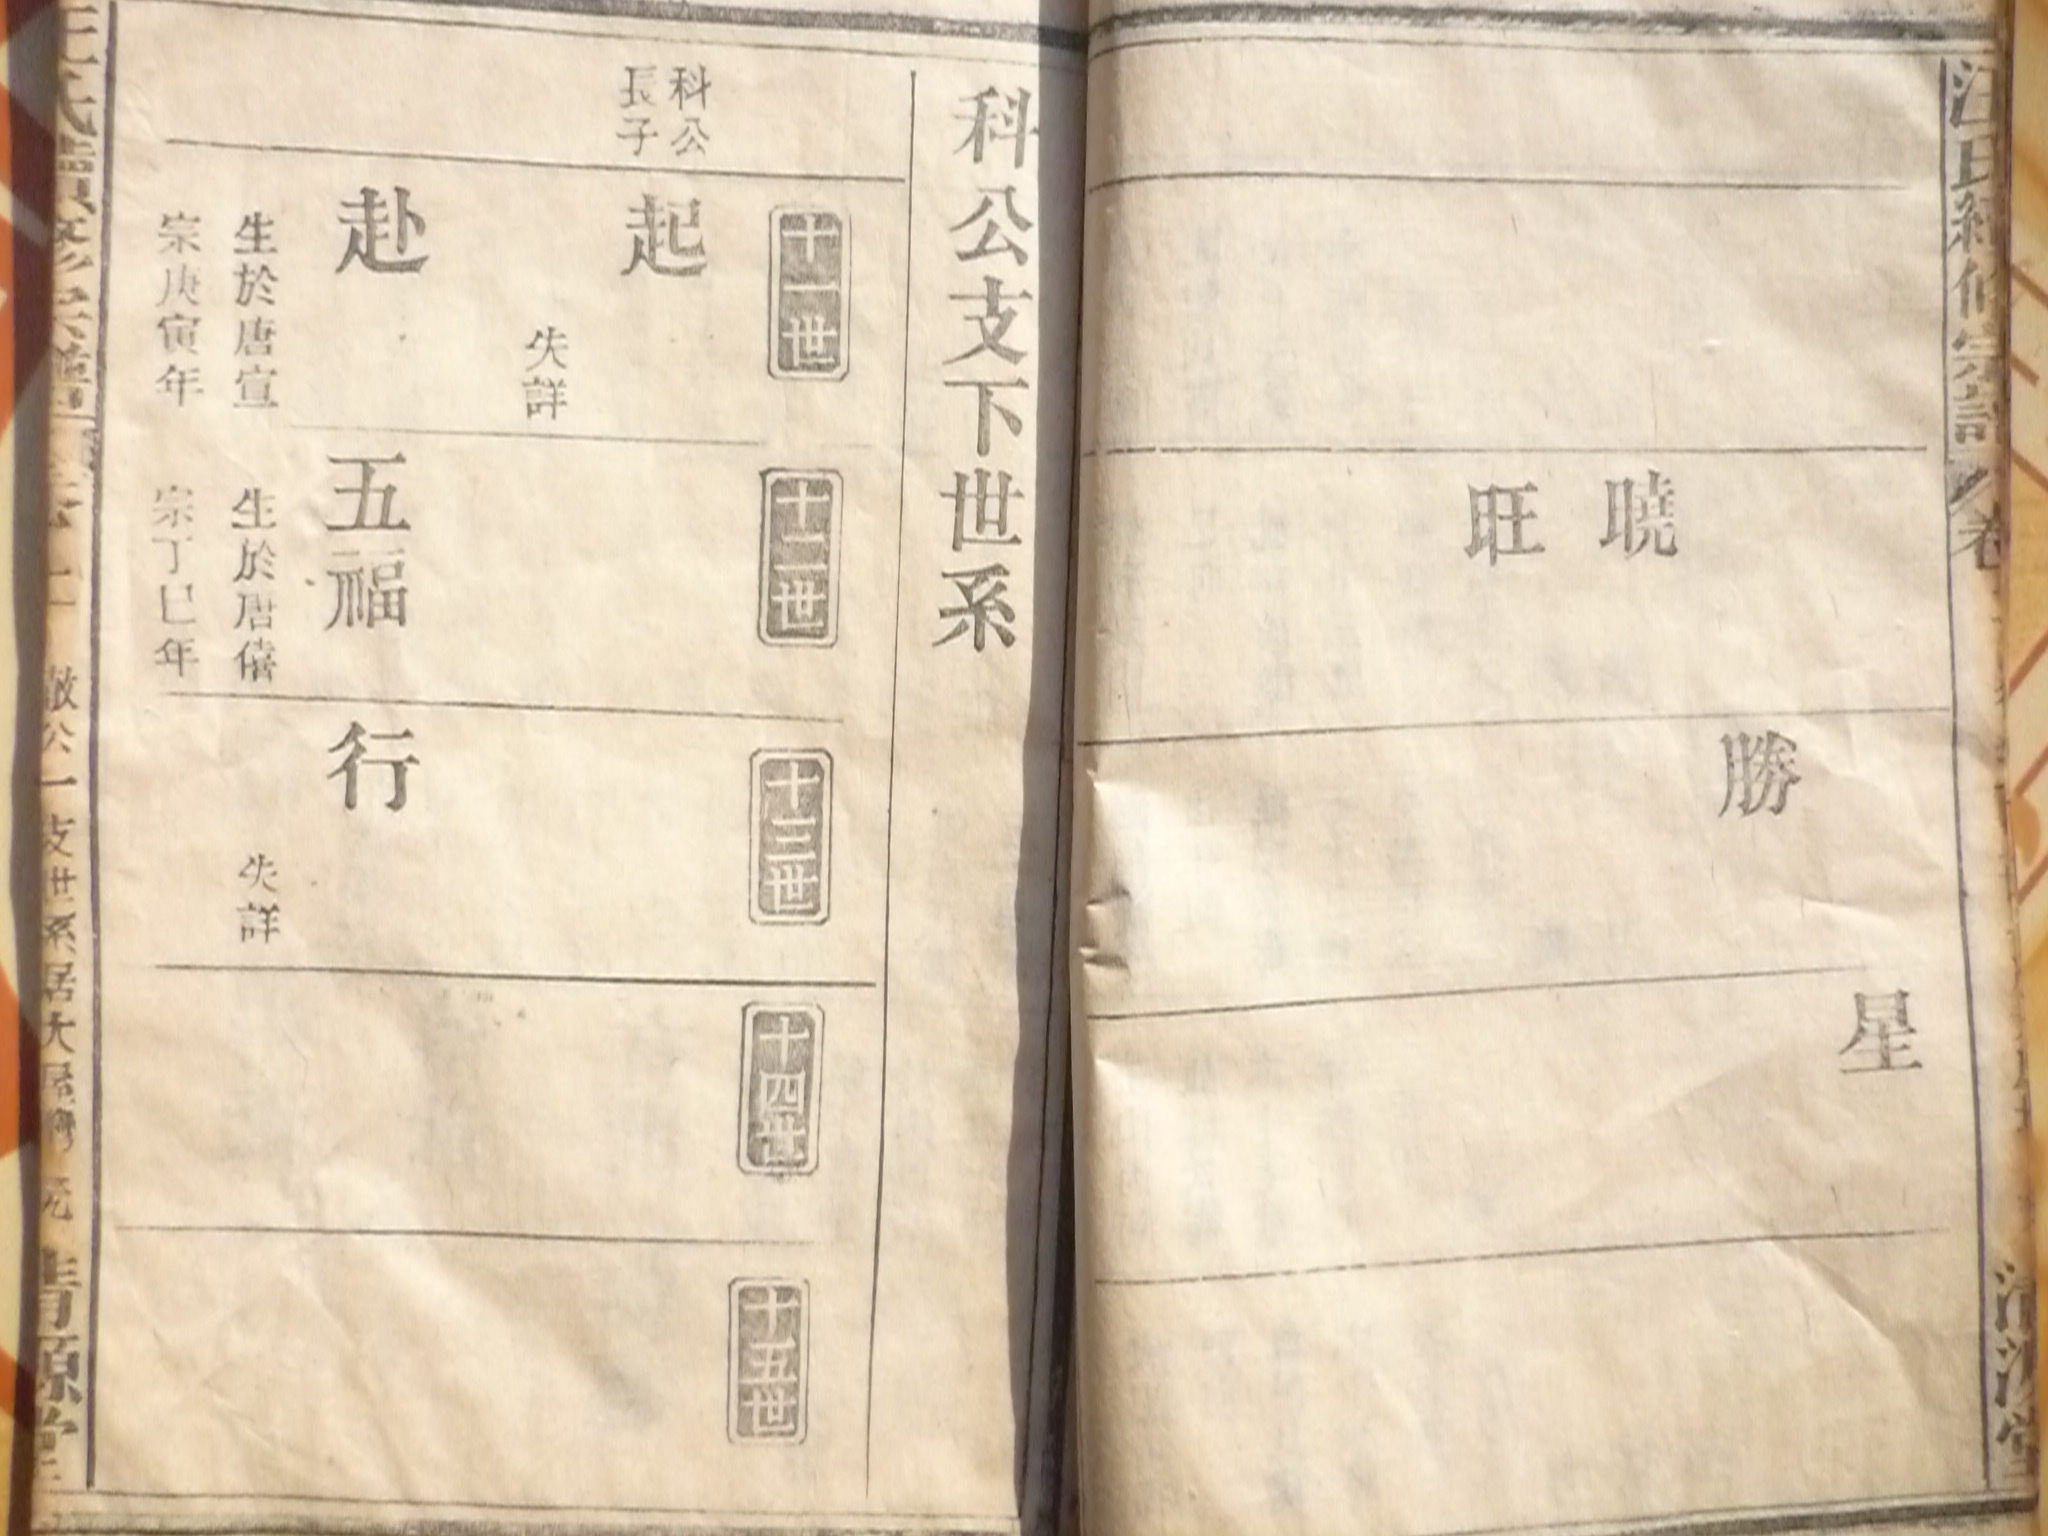 星
勝
曉
旺
科公支下世系
十一世
十二世
十三世
十四世
十五世
科公
長子
起
失詳
赴
生於唐宣
宗庚寅年
五福
生於唐僖
宗丁巳年
行
失詳
敬公一支世系居大屋灣
清源堂